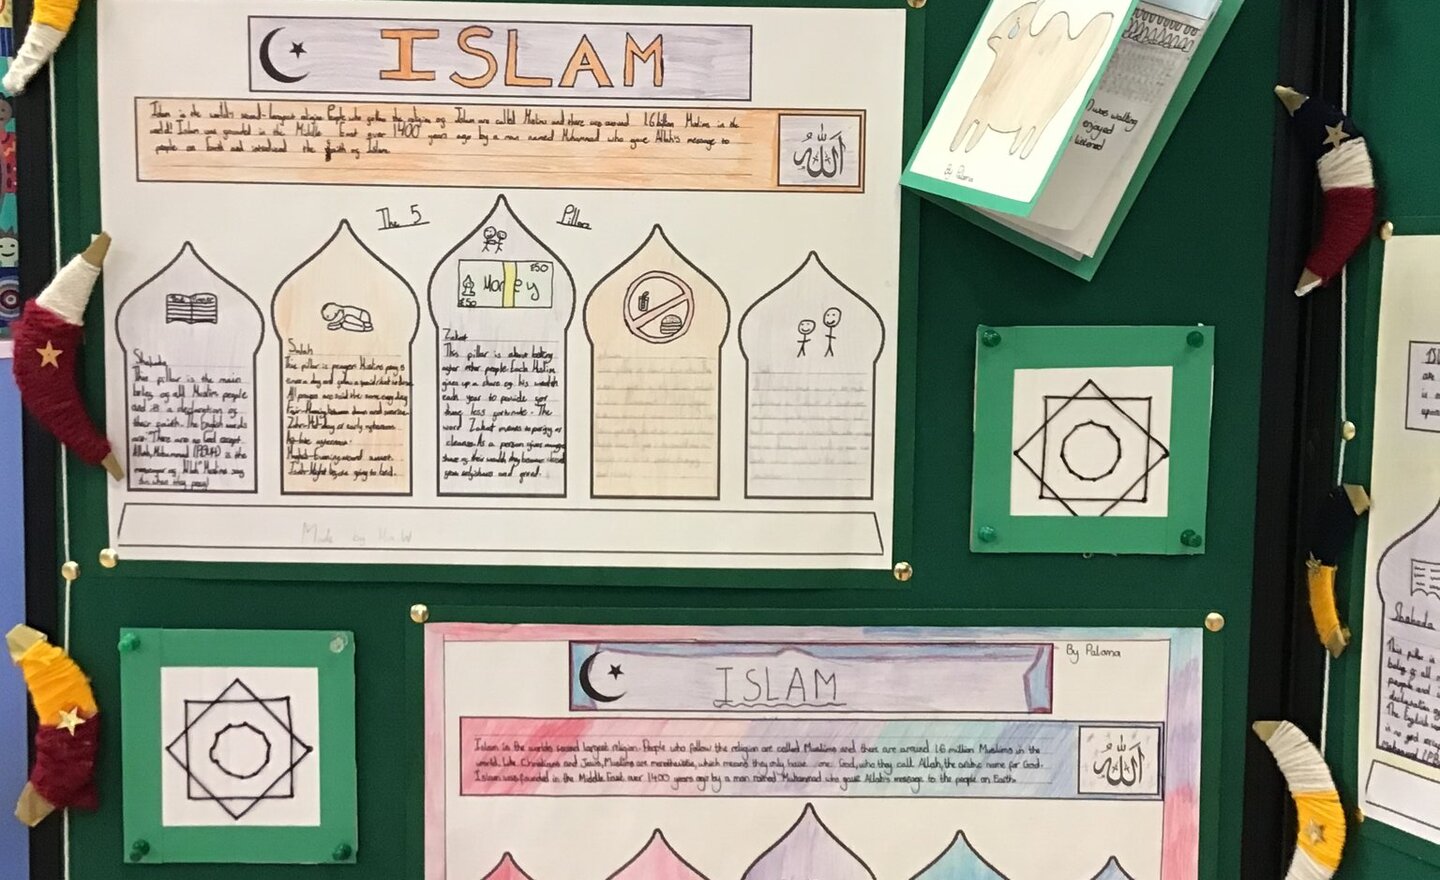 ISLAM
Islam is the world's second-largest religion. People who follow the religion of Islam are called Muslims and there are around 1.6 billion Muslims in the
world! Islam was founded in the Middle East over 1400 years ago by a man named Muhammad who gave Allah's message to
people on Earth and introduced the faith of Islam.
الله
The 5 Pillars
Shahada
This pillar is the main
belief of all Muslim people
and is a declaration of
their faith. The English words
are: "There are no God except
Allah, Muhammad (PBUH) is the
messenger of Allah" Muslims say
this when they pray!
Salah
This pillar is prayer. Muslims pray 5
times a day and
All prayers are said the same every day
dawn and sunrise
Mid-day or early afternoon
late afternoon
sunset
Night before going to bed.
£50
Money
£50
Zakat
This pillar is about helping
other people. Each Muslim
gives up a share of his wealth
each year to provide for
those less fortunate. The
word Zakat means to purify or
cleanse. As a person gives away
share of their wealth they become
selfishness and greed.
Made by
By Paloma
I was walking
enjoyed
listened
By Paloma
ISLAM
Islam is the worlds second largest religion. People who follow the religion are called Muslims and there are around 1.6 million Muslims in the
world. Like Christians and Jews, Muslims are monotheistic, which means they only have one God, who they call Allah, the arabic name for God.
Islam was founded in the Middle East over 1400 years ago by a man named Muhammad who gave Allah's message to the people on Earth.
الله
Shahada
This pillar is
belief of all
people and
declaration of
The English
is no god